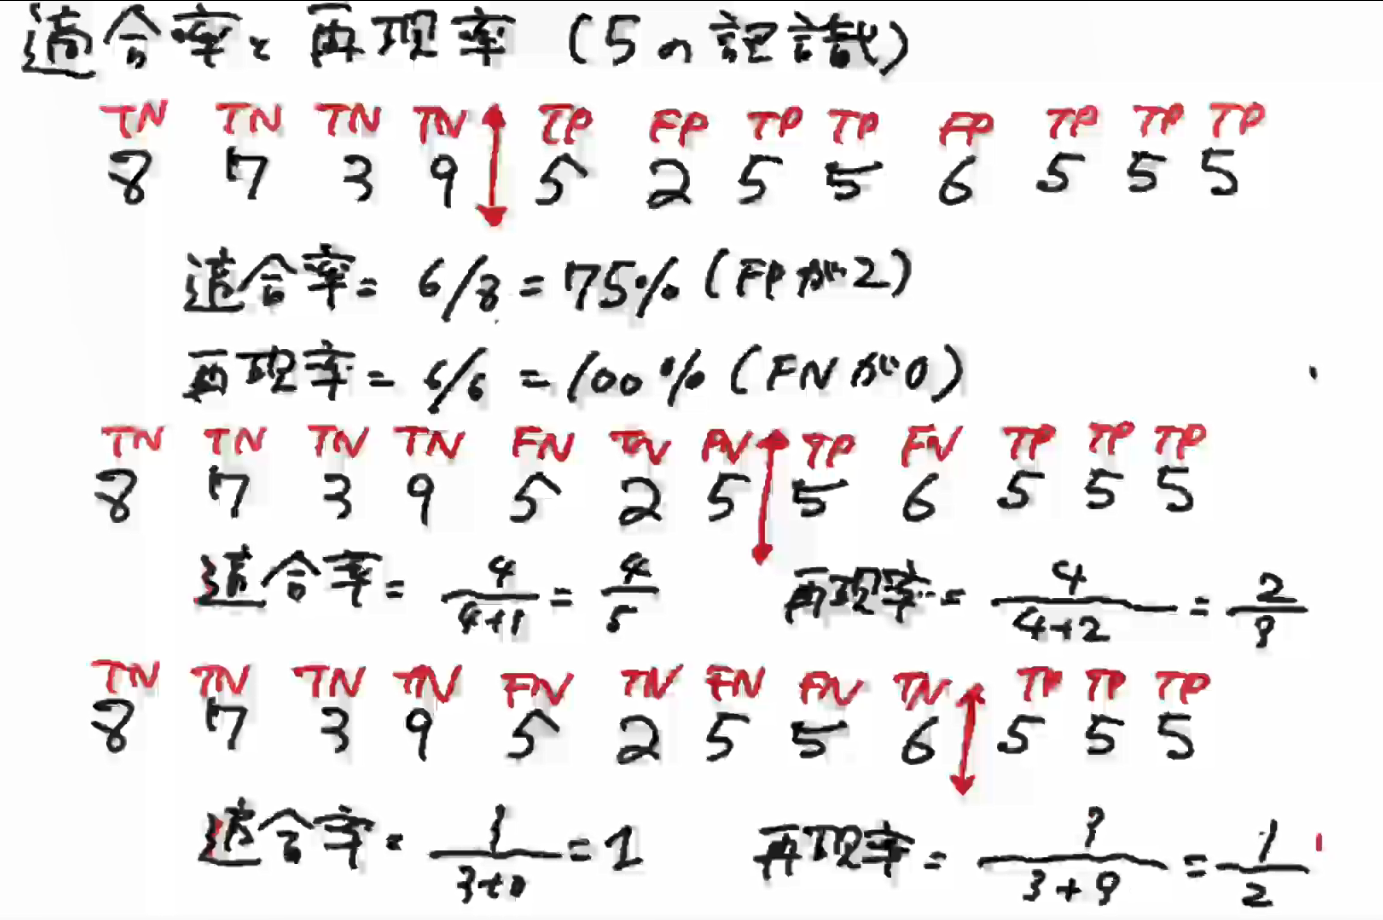 適合率と再現率 (5の認識)
TN TN TN TN TP FP TP TP FP TP TP TP
8 7 3 9 5 2 5 5 6 5 5 5
適合率 = 6/8 = 75% (FPが2)
再現率 = 6/6 = 100% (FNが0)
TN TN TN TN FN TN FN TP FN TP TP TP
8 7 3 9 5 2 5 5 6 5 5 5
適合率 = 4/4+1 = 4/5 再現率 = 4/4+2 = 2/3
TN TN TN TN FN TN FN FN TN TP TP TP
8 7 3 9 5 2 5 5 6 5 5 5
適合率 = 3/3+0 = 1 再現率 = 3/3+3 = 1/2